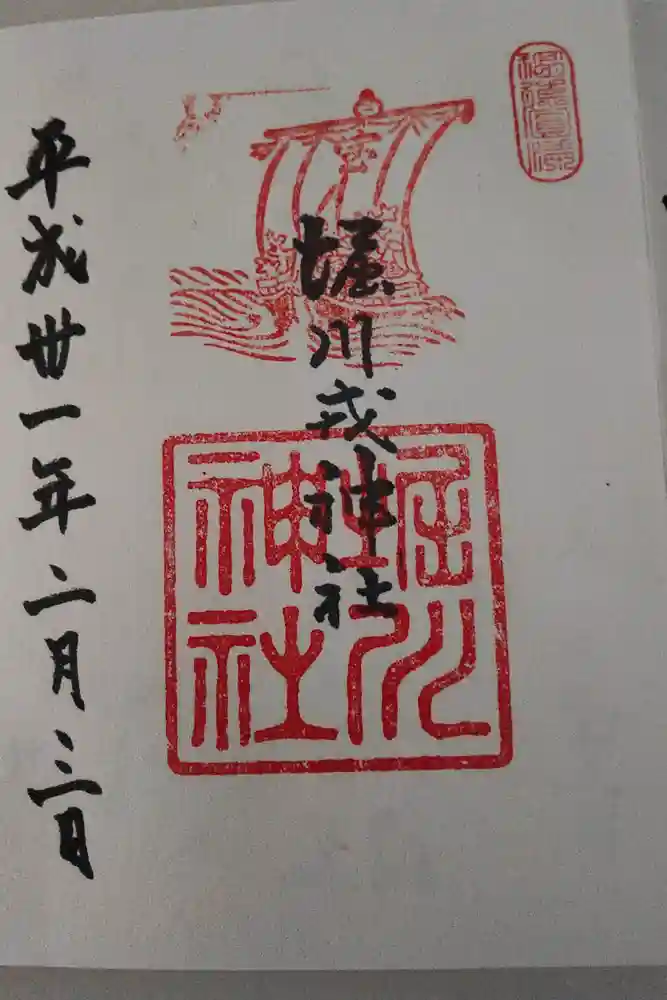 堀川戎神社
堀川
神社
平成丗一年二月三日